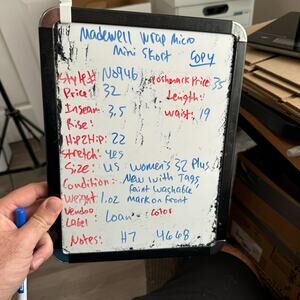 Madewell Wrap Micro
Mini Skort copy
Style# N0946 Poshmark Price: 35
Price: 32 Length:
Inseam: 3.5 Waist: 19
Rise:
Hip2Hip: 22
Stretch: yes
Size: US Women's 32 Plus
Condition: New with Tags,
faint washable
Weight 1.02 mark on front
Vendoo
Label Loan color
Notes: H7 4668